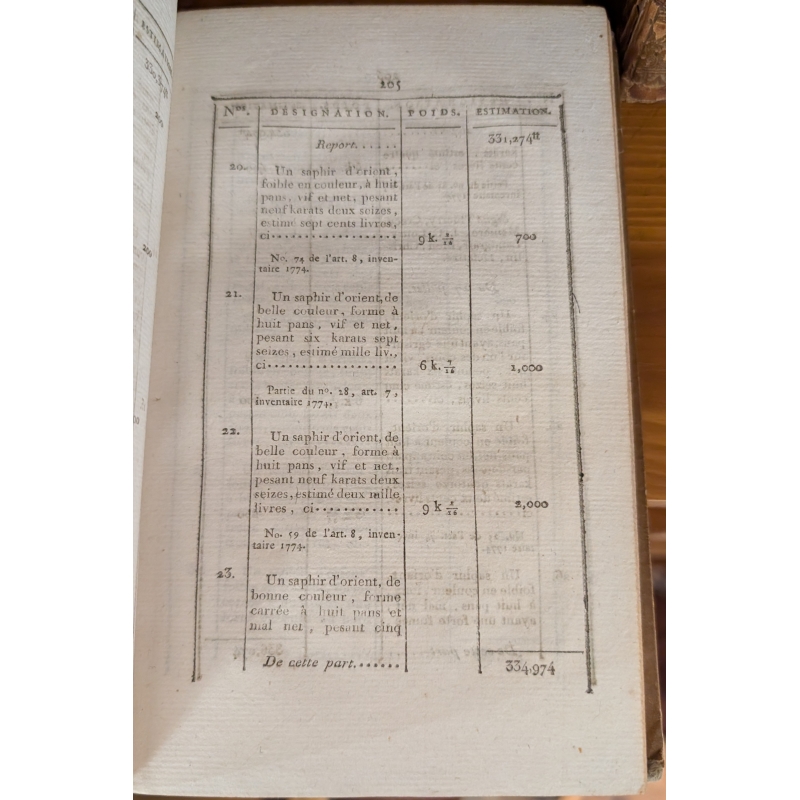 ESTIMATION
205
Nos. DÉSIGNATION. POIDS. ESTIMATION.
Report...... 331,274tt
20. Un saphir d'orient,
foible en couleur, à huit
pans, vif et net, pesant
neuf karats deux seizes,
estimé sept cents livres,
ci.................... 9 k. 2/16 700
No. 74 de l'art. 8, inven-
taire 1774.
21. Un saphir d'orient, de
belle couleur, forme à
huit pans, vif et net,
pesant six karats sept
seizes, estimé mille liv.,
ci.................... 6 k. 7/16 1,000
Partie du no. 28, art. 7,
inventaire 1774.
22. Un saphir d'orient, de
belle couleur, forme à
huit pans, vif et net,
pesant neuf karats deux
seizes, estimé deux mille
livres, ci............. 9 k 2/16 2,000
No. 59 de l'art. 8, inven-
taire 1774.
23. Un saphir d'orient, de
bonne couleur, forme
carrée à huit pans et
mal net, pesant cinq
De cette part....... 334,974